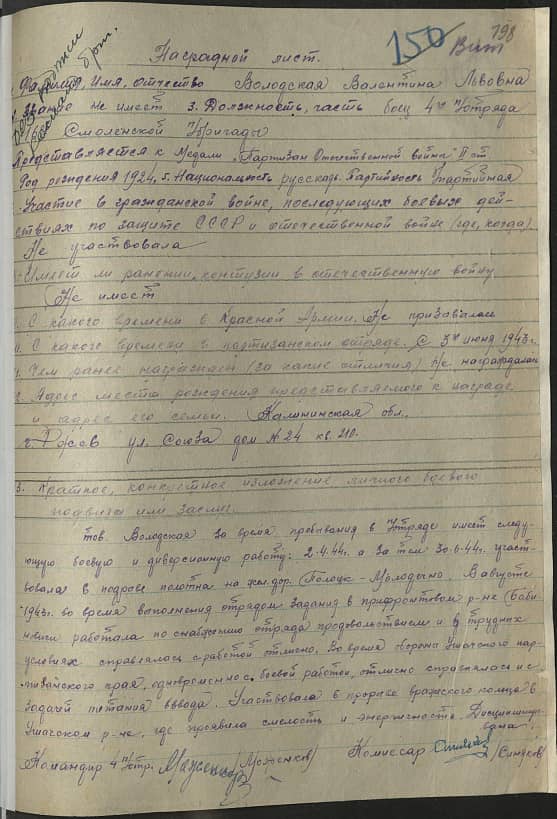 150
198
Наградной лист.
Фамилия, Имя, отчество Володская Валентина Львовна
Звание не имеет 3. Должность, часть боец 4го п/отряда
Смоленской п/бригады
Представляется к Медали „Партизан Отечественной войны" II ст
Год рождения 1924 г. Национальность русская. Партийность б/партийная
Участие в гражданской войне, последующих боевых дей-
ствиях по защите СССР и отечественной войне (где, когда)
Не участвовала
Имеет ли ранении, контузии в отечественную войну
Не имеет
С какого времени в Красной Армии. Не призавалась
С какого времени в партизанском отряде. С 5го июня 1943 г.
Чем ранее награжден (за какие отличия) Не награждалась
Адрес места рождения представляемого к награде
и адрес его семьи. Калининская обл.
г. Ржев ул. Союза дом № 24 кв. 210.
3. Краткое, конкретное изложение личного боевого
подвига или заслуг.
тов. Володская за время пребывания в п/отряде имеет следу-
ющую боевую и диверсионную работу: 2.4.44 г. а затем 30.6.44 г. участ-
вовала в подрыве полотна на жел. дор. (Полоцк - Молодечно. В августе
1943 г. во время выполнения отрядом задания в прифронтовом р-не (Баби-
новичи работала по снабжению отряда продовольствием и в трудных
условиях справлялась с работой отлично. Во время обороны Ушачского пар-
тизанского края, одновременно с боевой работой, отлично справлялась и с
задачей питания взвода. Участвовала в прорыве вражеского кольца в
Ушачском р-не, где проявила смелость и энергичность. Дисциплинир-
вана.
Командир 4 п/отр. (Моженков) Комиссар (Синяков)